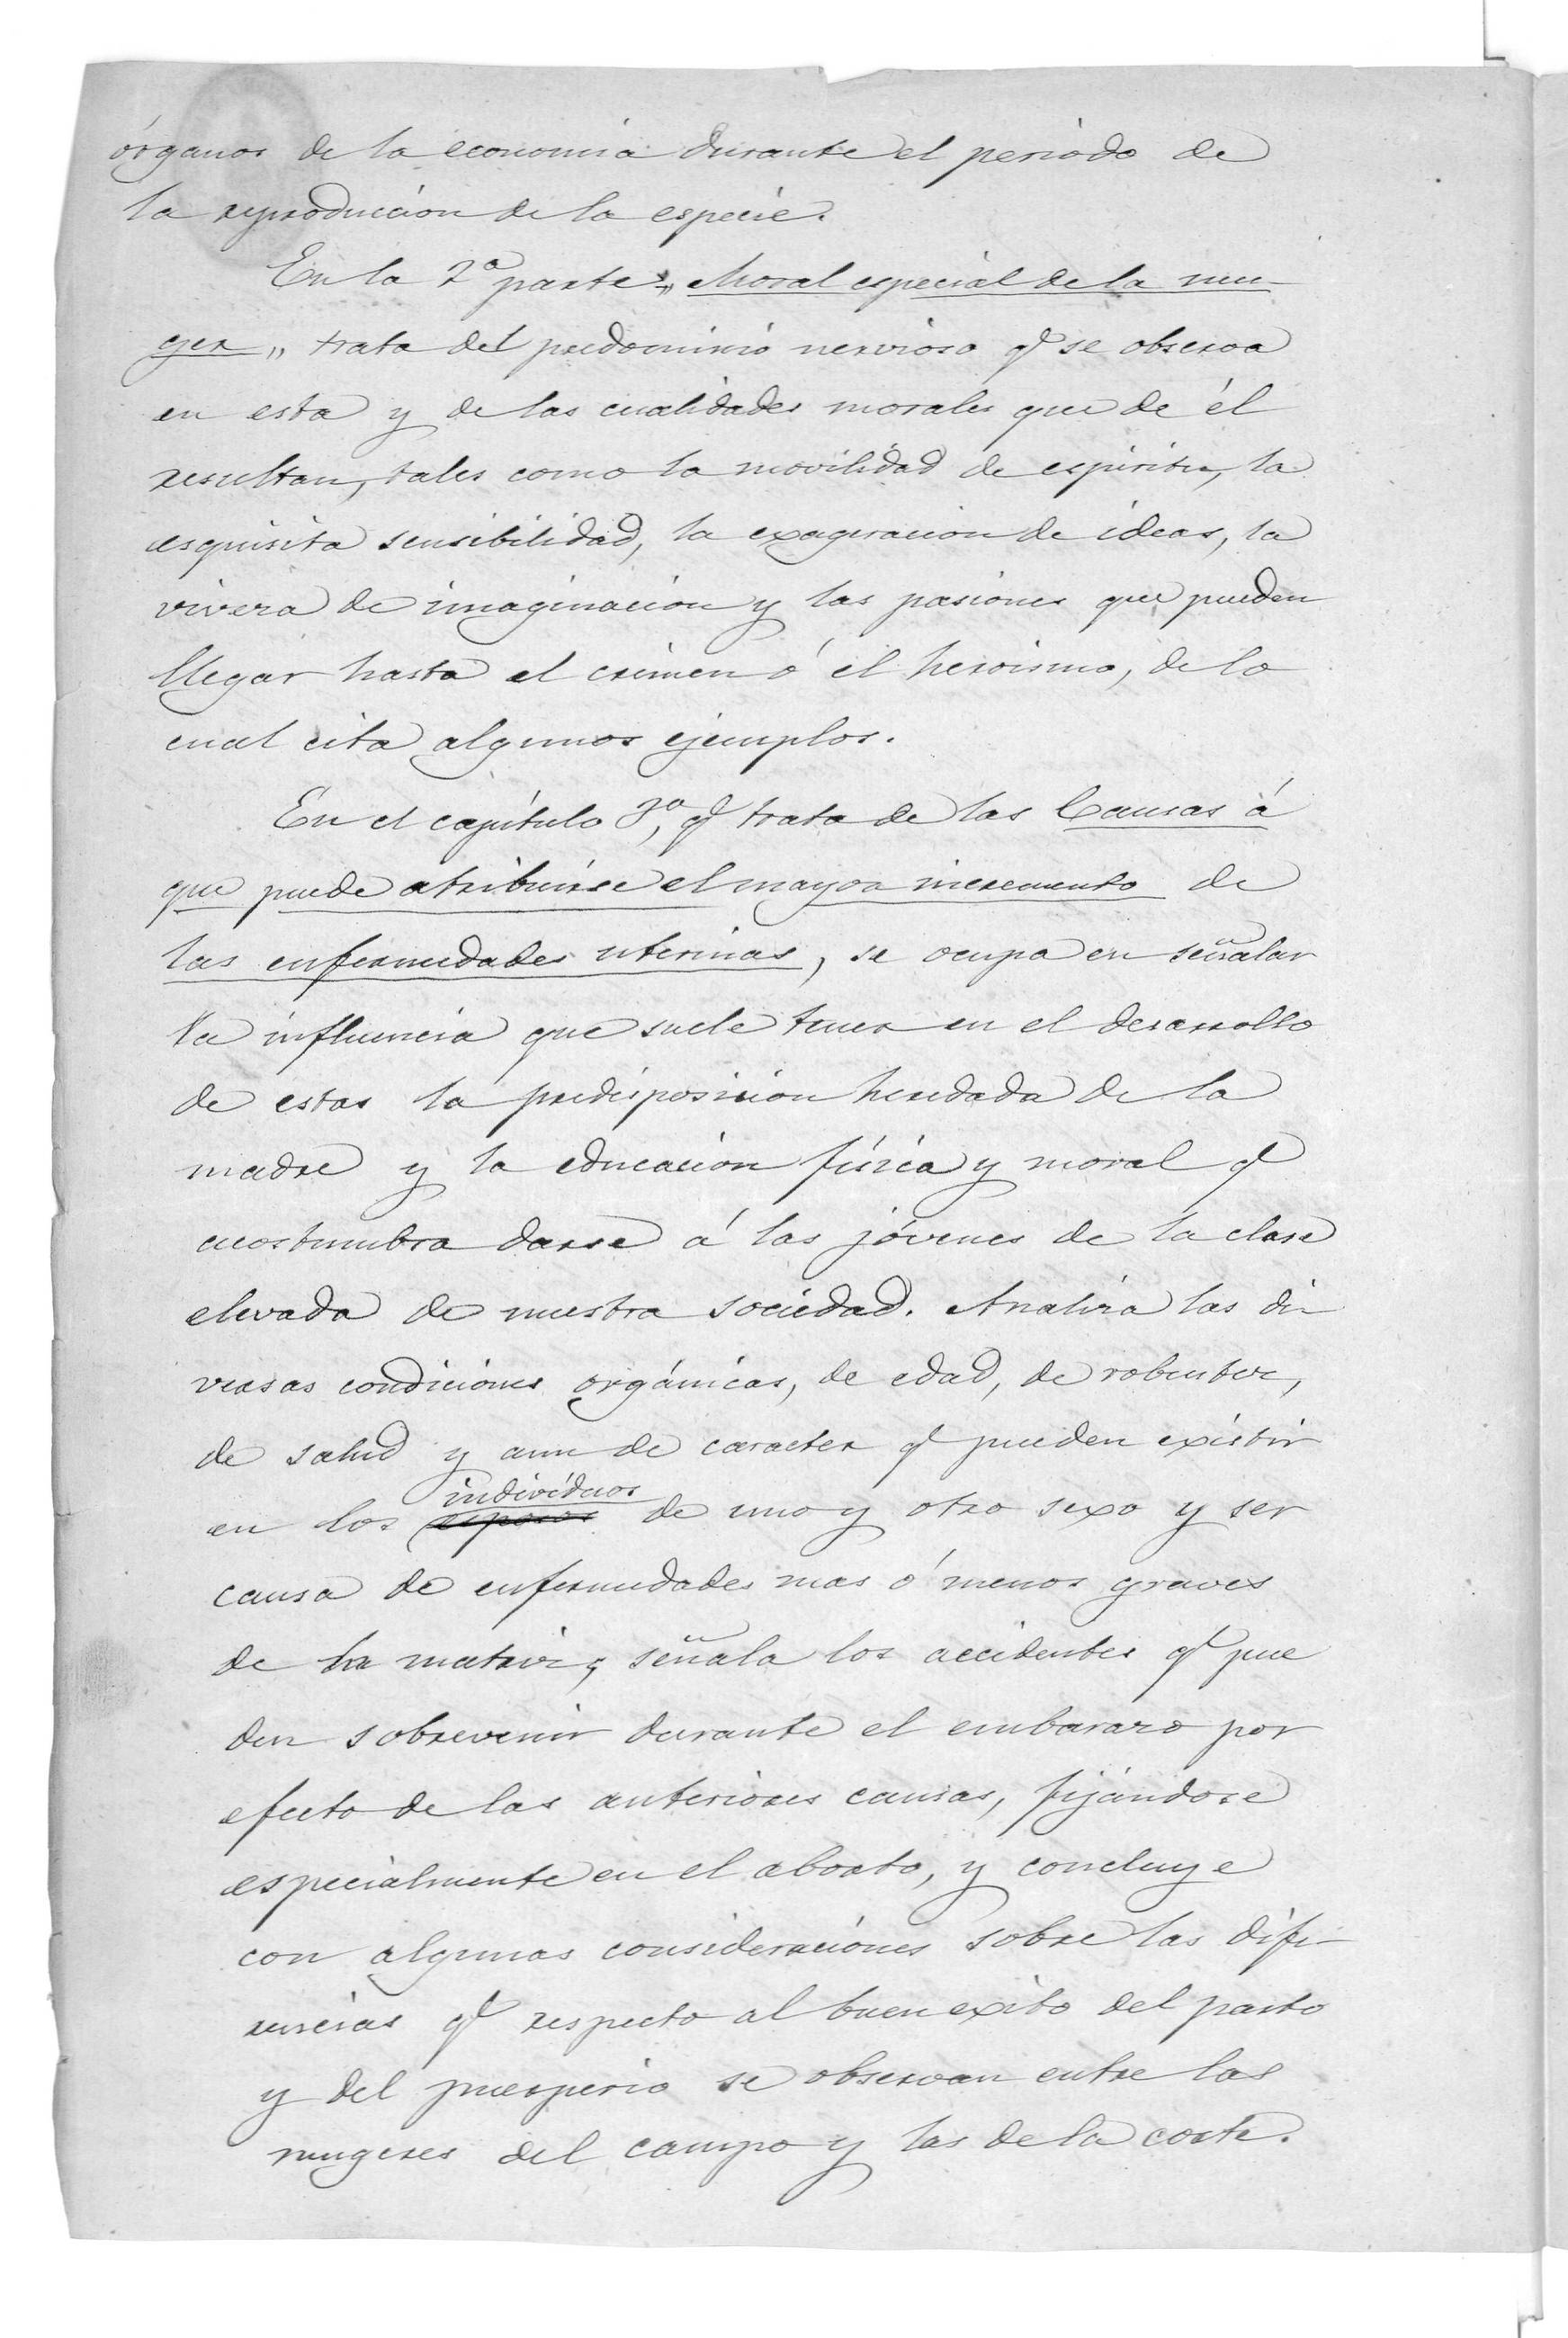 órganos de la economia durante el periodo de
la reproduccion de la especie.
En la 2ª parte „Moral especial de la mu-
ger„ trata del predominio nervioso q.e se observa
en esta y de las cualidades morales que de él
resultan, tales como la movilidad de espiritu, la
esquisita sensibilidad, la exageracion de ideas, la
viveza de imaginacion y las pasiones que pueden
llegar hasta el crimen ó el heroismo, de lo
cual cita algunos ejemplos.
En el capítulo 3º, q.e trata de las Causas á
que puede atribuirse el mayor incremento de
las enfermedades uterinas, se ocupa en señalar
la influencia que suele tener en el desarrollo
de estas la predisposicion heredada de la
madre y la educacion física y moral q.e
acostumbra darse á las jóvenes de la clase
elevada de nuestra sociedad. Analiza las di
versas condiciones orgánicas, de edad, de robustez,
de salud y aun de caracter q.e pueden existir
individuos
en los esposos de uno y otro sexo y ser
causa de enfermedades mas ó menos graves
de la matriz; señala los accidentes q.e pue
den sobrevenir durante el embarazo por
efecto de las anteriores causas, fijándose
especialmente en el aborto, y concluye
con algunas consideraciones sobre las dife-
rencias q.e respecto al buen exito del parto
y del puerperio se observan entre las
mugeres del campo y las de la corte.